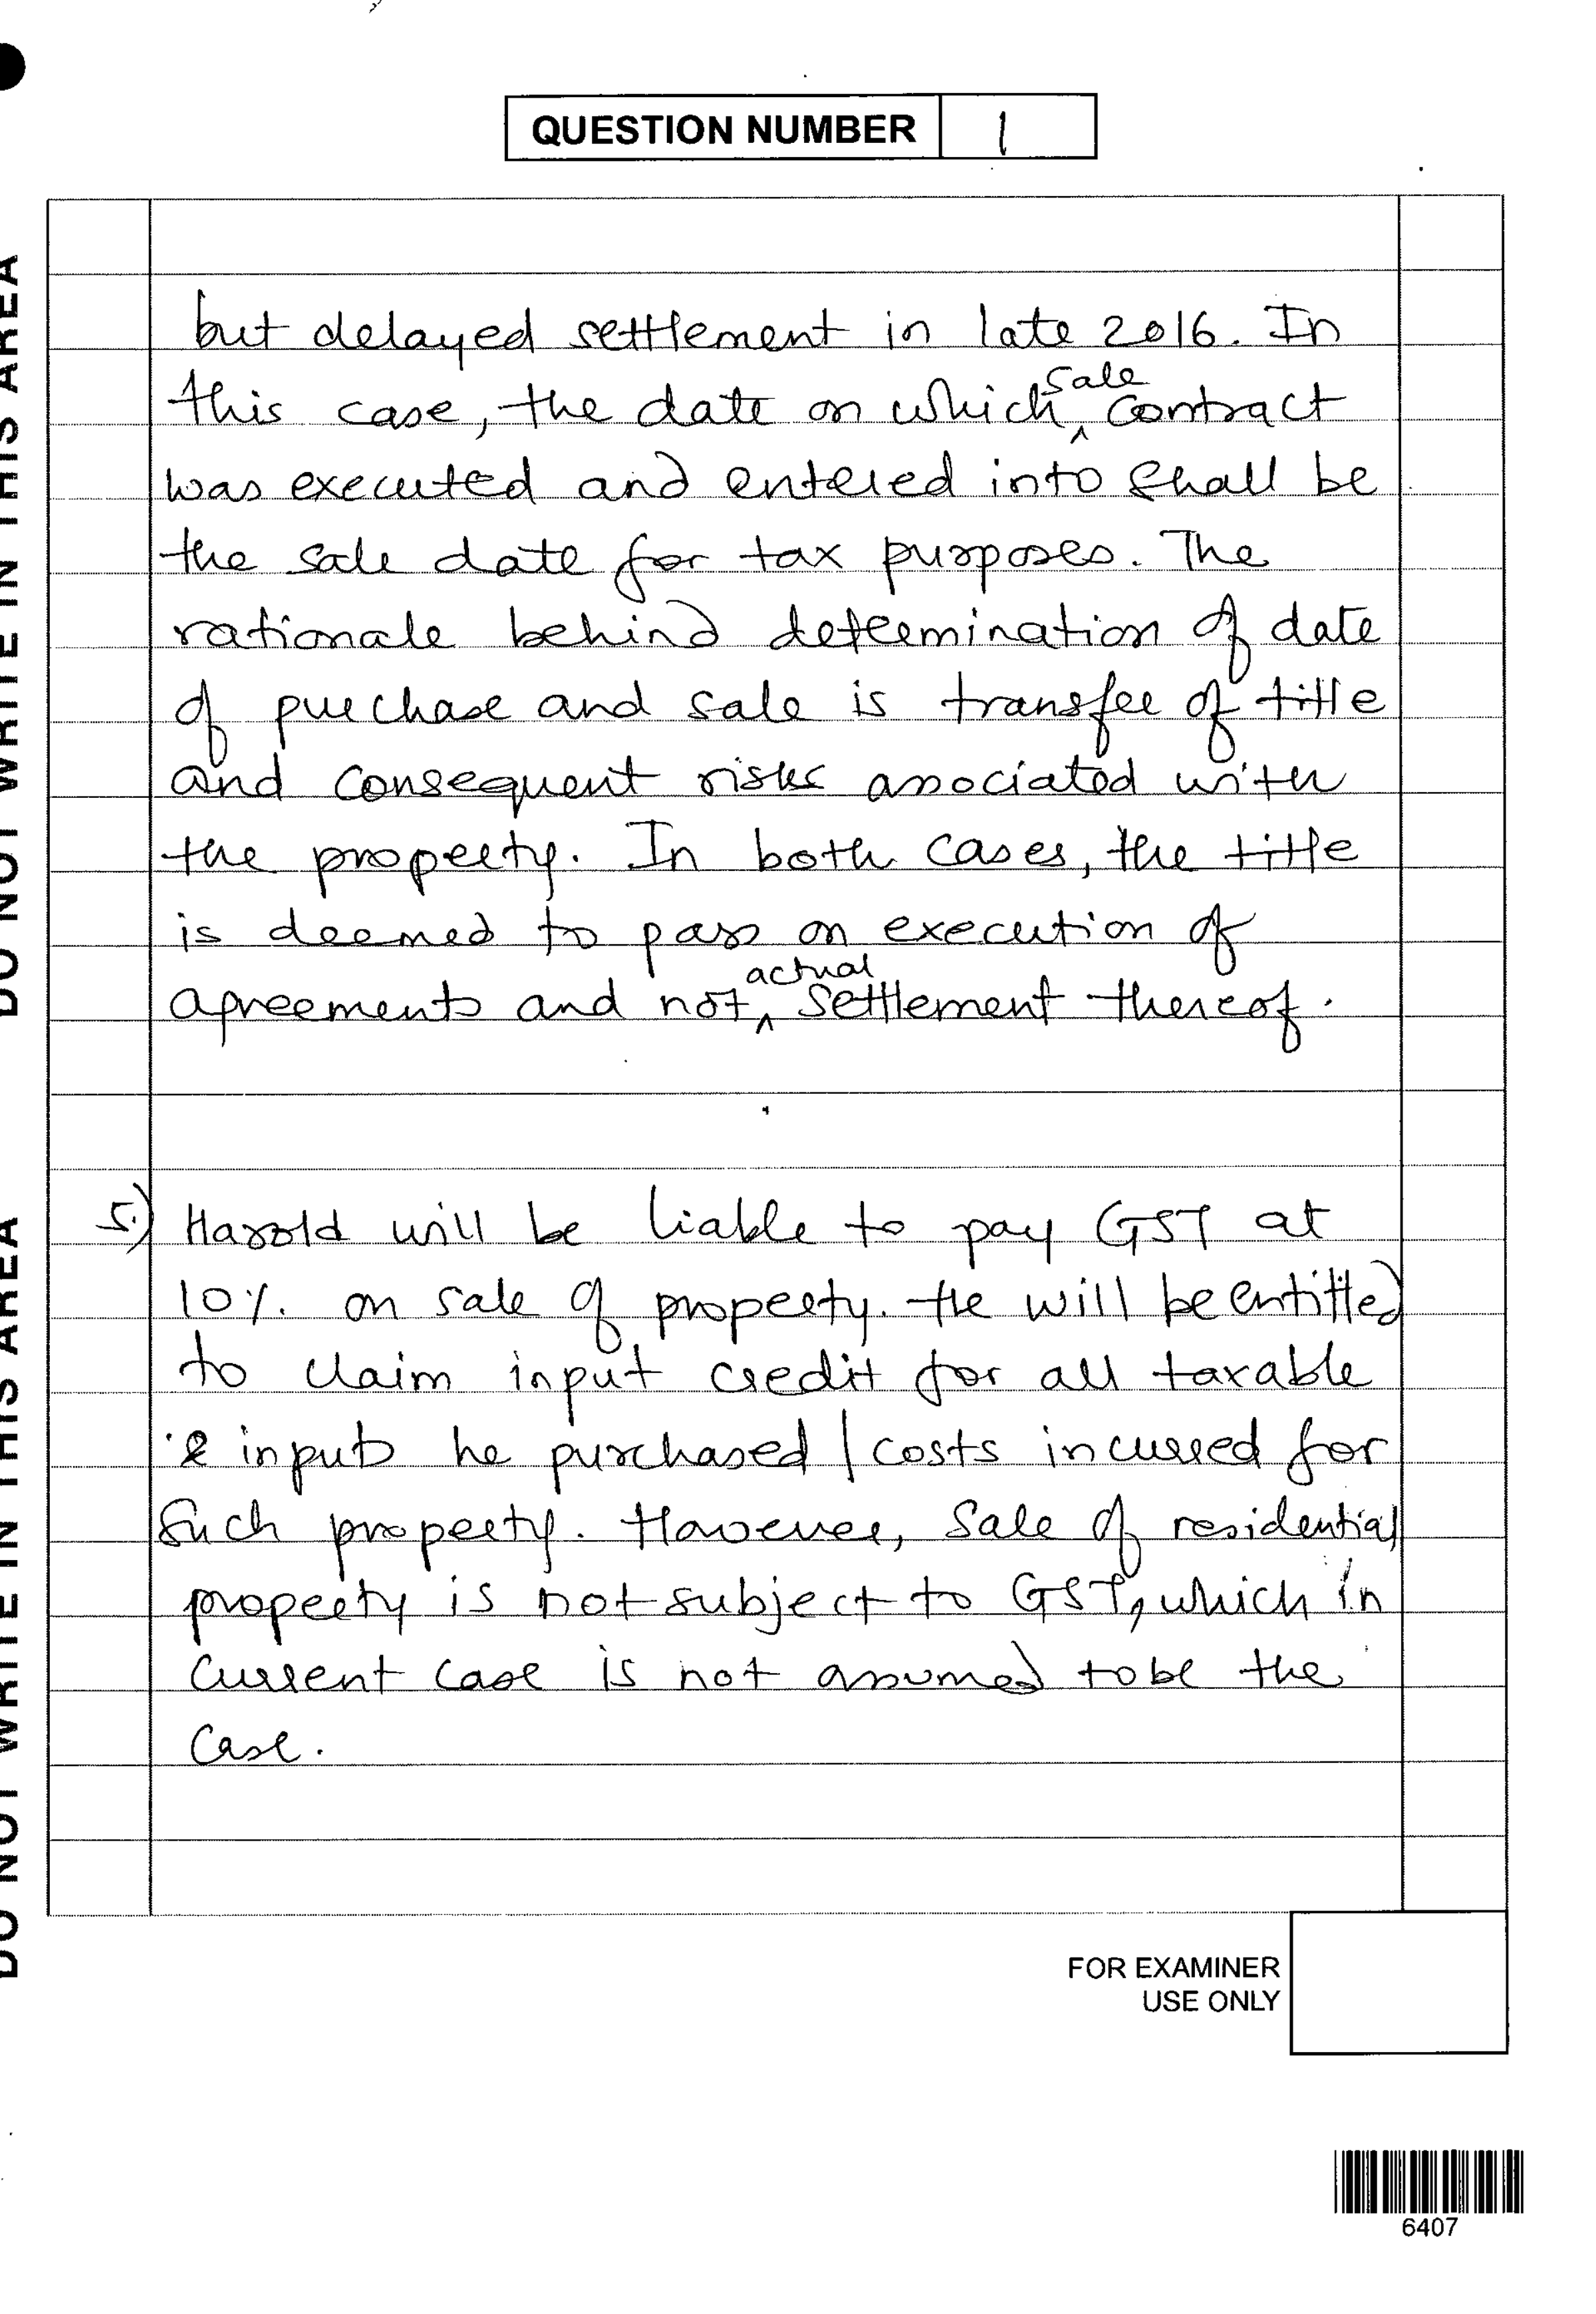 QUESTION NUMBER 1
but delayed settlement in late 2016. In
this case, the date on which sale contract
was executed and entered into shall be
the sale date for tax purposes. The
rationale behind determination of date
of purchase and sale is transfer of title
and consequent risks associated with
the property. In both cases, the title
is deemed to pass on execution of
agreements and not actual settlement thereof.
5.) Harold will be liable to pay GST at
10%. on sale of property. He will be entitled
to claim input credit for all taxable
inputs he purchased / costs incurred for
such property. However, sale of residential
property is not subject to GST, which in
current case is not assumed to be the
case.
FOR EXAMINER
USE ONLY
6407
DO NOT WRITE IN THIS AREA
DO NOT WRITE IN THIS AREA